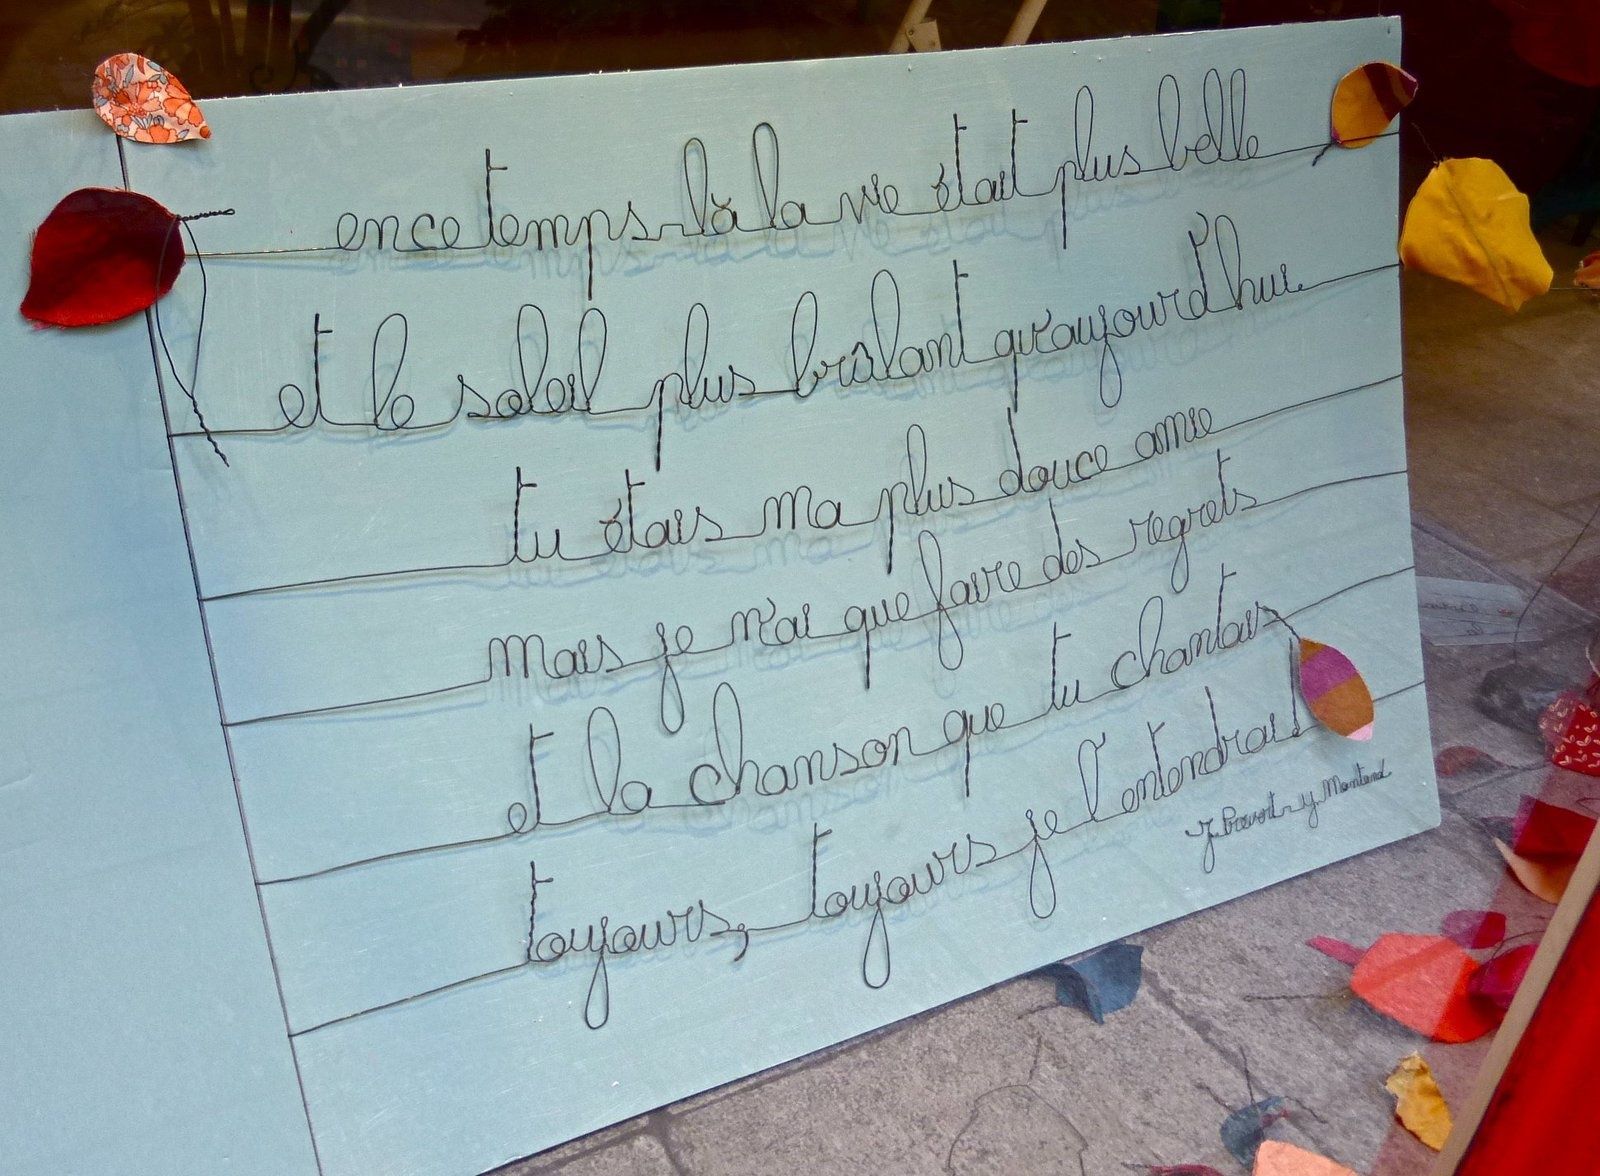 en ce temps-là la vie était plus belle
et le soleil plus brûlant qu'aujourd'hui.
tu étais ma plus douce amie
mais je n'ai que faire des regrets
et la chanson que tu chantais
toujours, toujours je l'entendrai!
J. Prevert - y. Montand